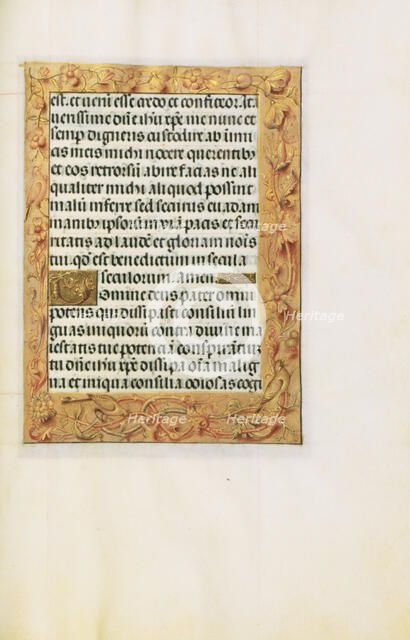 est. et veni esse credo et confiteor. At
verissime dn̄e ih̄u xp̄e me nunc et
semp digneris custodire ab inim
cis meis michi nocere querentibꝫ
et eos retrorsū abire facias ne ali
qualiter michi aliquod possint
malū inferre sed securus eu adam
manibꝫ ipsorū in viā pacis et secu
ritatis ad laudē et gloriam noīs
tui. qd̄ est benedictum in secula
seculorum. amen
Omine deus pater omni
potens qui dissipasti consilium lin
guas iniquorū contra divinā ma
iestatis tue potenciā conspirantiū
tu dn̄e ih̄u xp̄e dissipa om̄a malig
na et iniqua consilia odiosas cogi
Heritage
Heritage
Heritage
Heritage